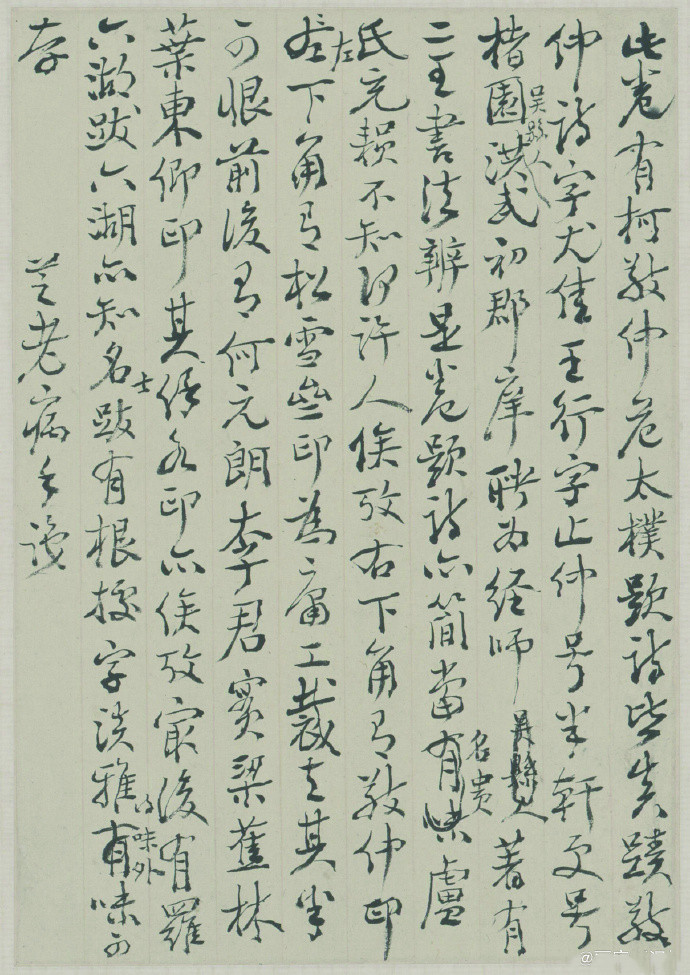 此卷有柯敬仲危太樸題詩皆真蹟敬
仲詩字尤佳王行字止仲号半軒更号
楮園吳縣人洪武初郡庠聘為經師著有
二王書法辨是卷題詩亦簡當名貴盧
氏充頪不知何許人俟攷右下角有敬仲印
左下角有松雪齋印為庸工裁去其半
可恨前後有何元朗李君實梁蕉林
葉東卿印其俻印亦俟攷最後有羅
六湖跋六湖亦知名士跋有根據字淡雅有味外味可
存
芝老病手識